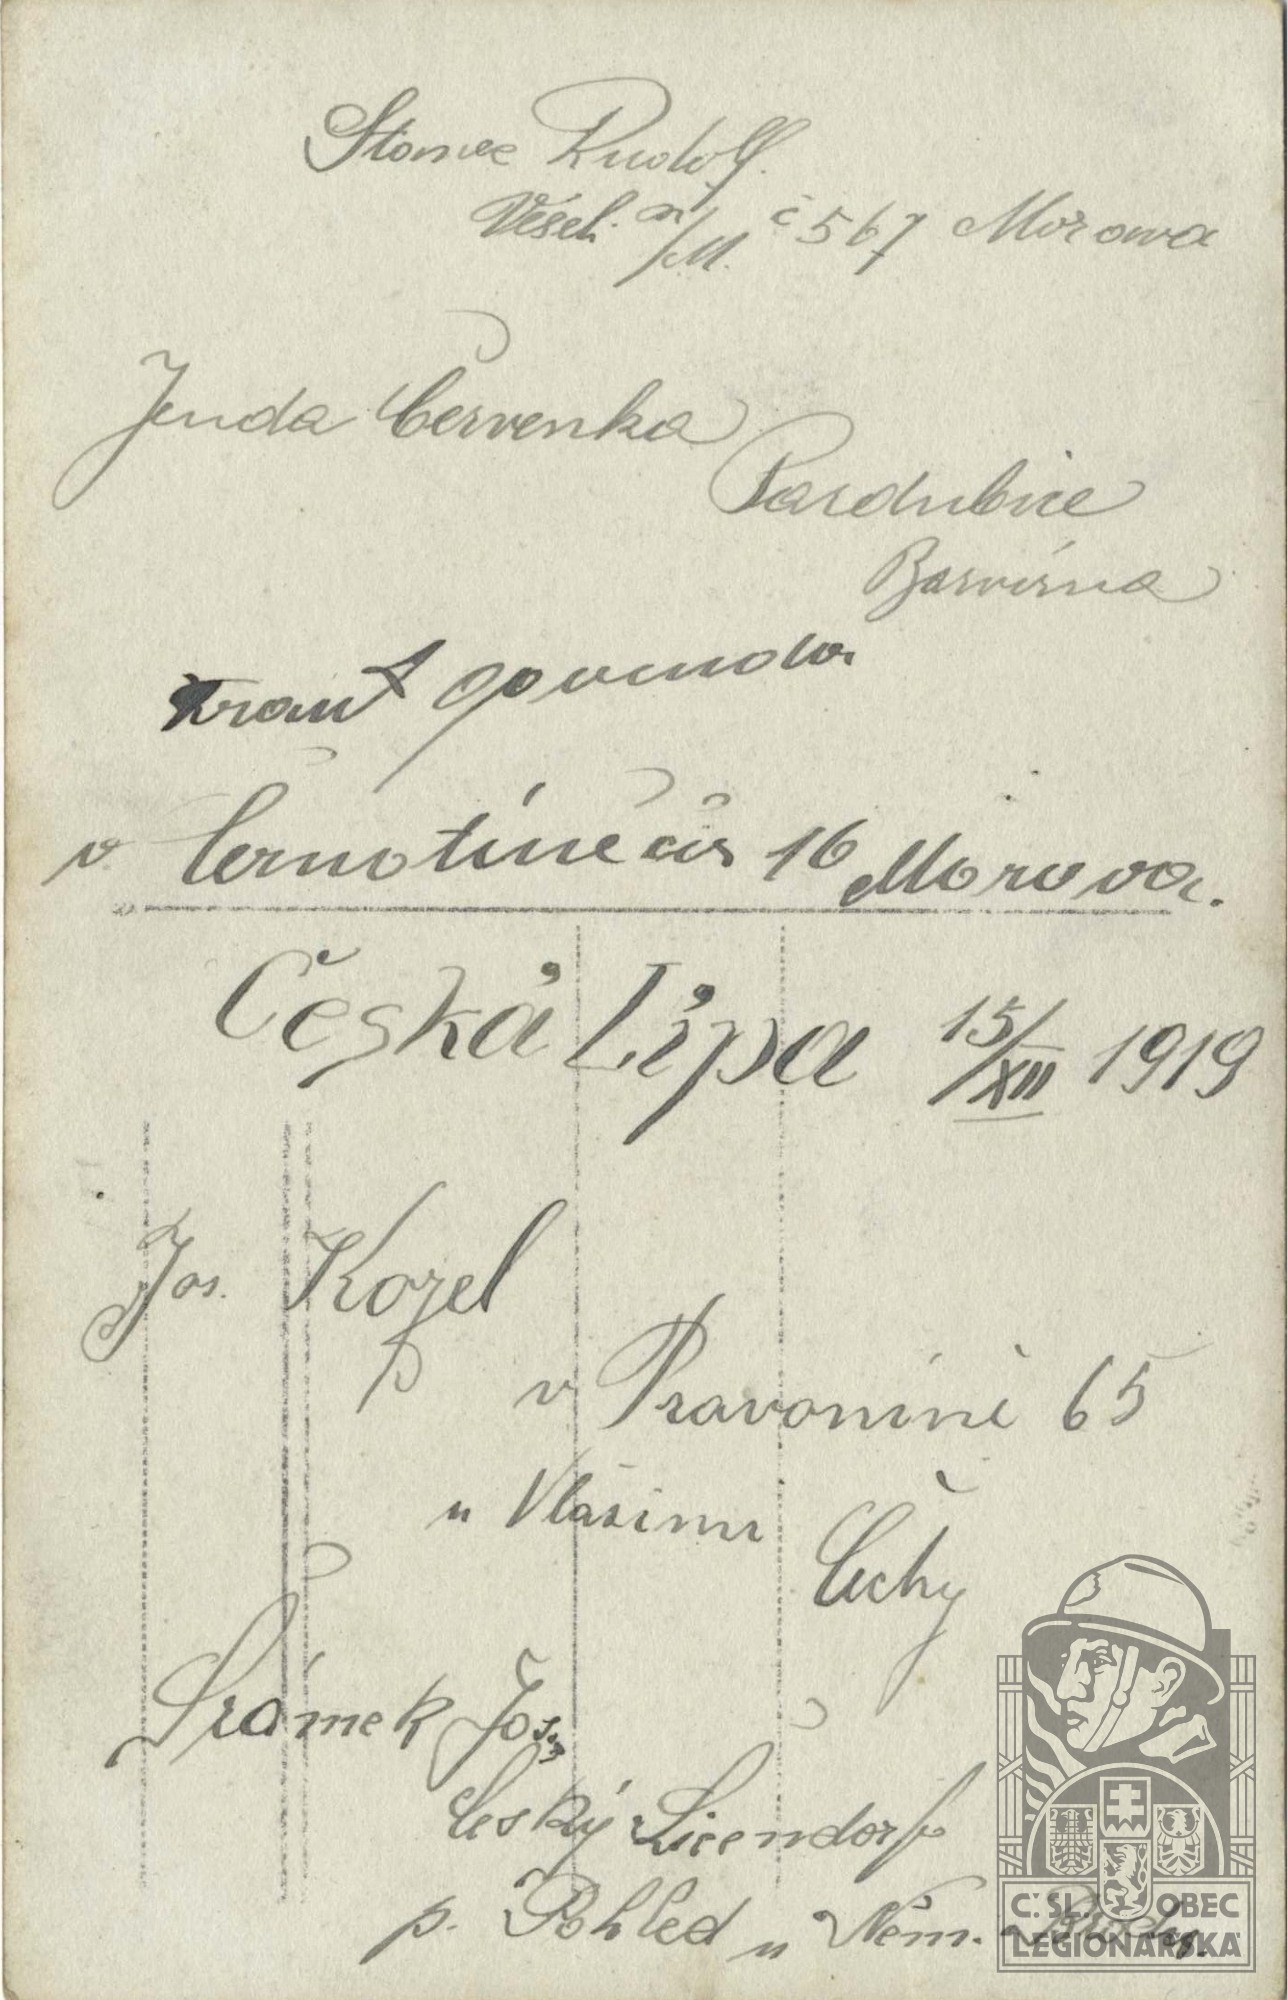 Stomec Rudolf.
Vésel. n/M. č 567 Morawa
Jenda Červenka
Pardubice
Barvírna
Frant
v Černotíně čís 16 Morava.
Česká Lípa 15/XII 1919
Jos. Kozel
v Pravoníně 65
u Vlašimi
Čechy
Šrámek Jos.
Český Šicendorf
p. Pohled u Něm. Brodu.
Č. SL. OBEC
LEGIONÁŘSKÁ